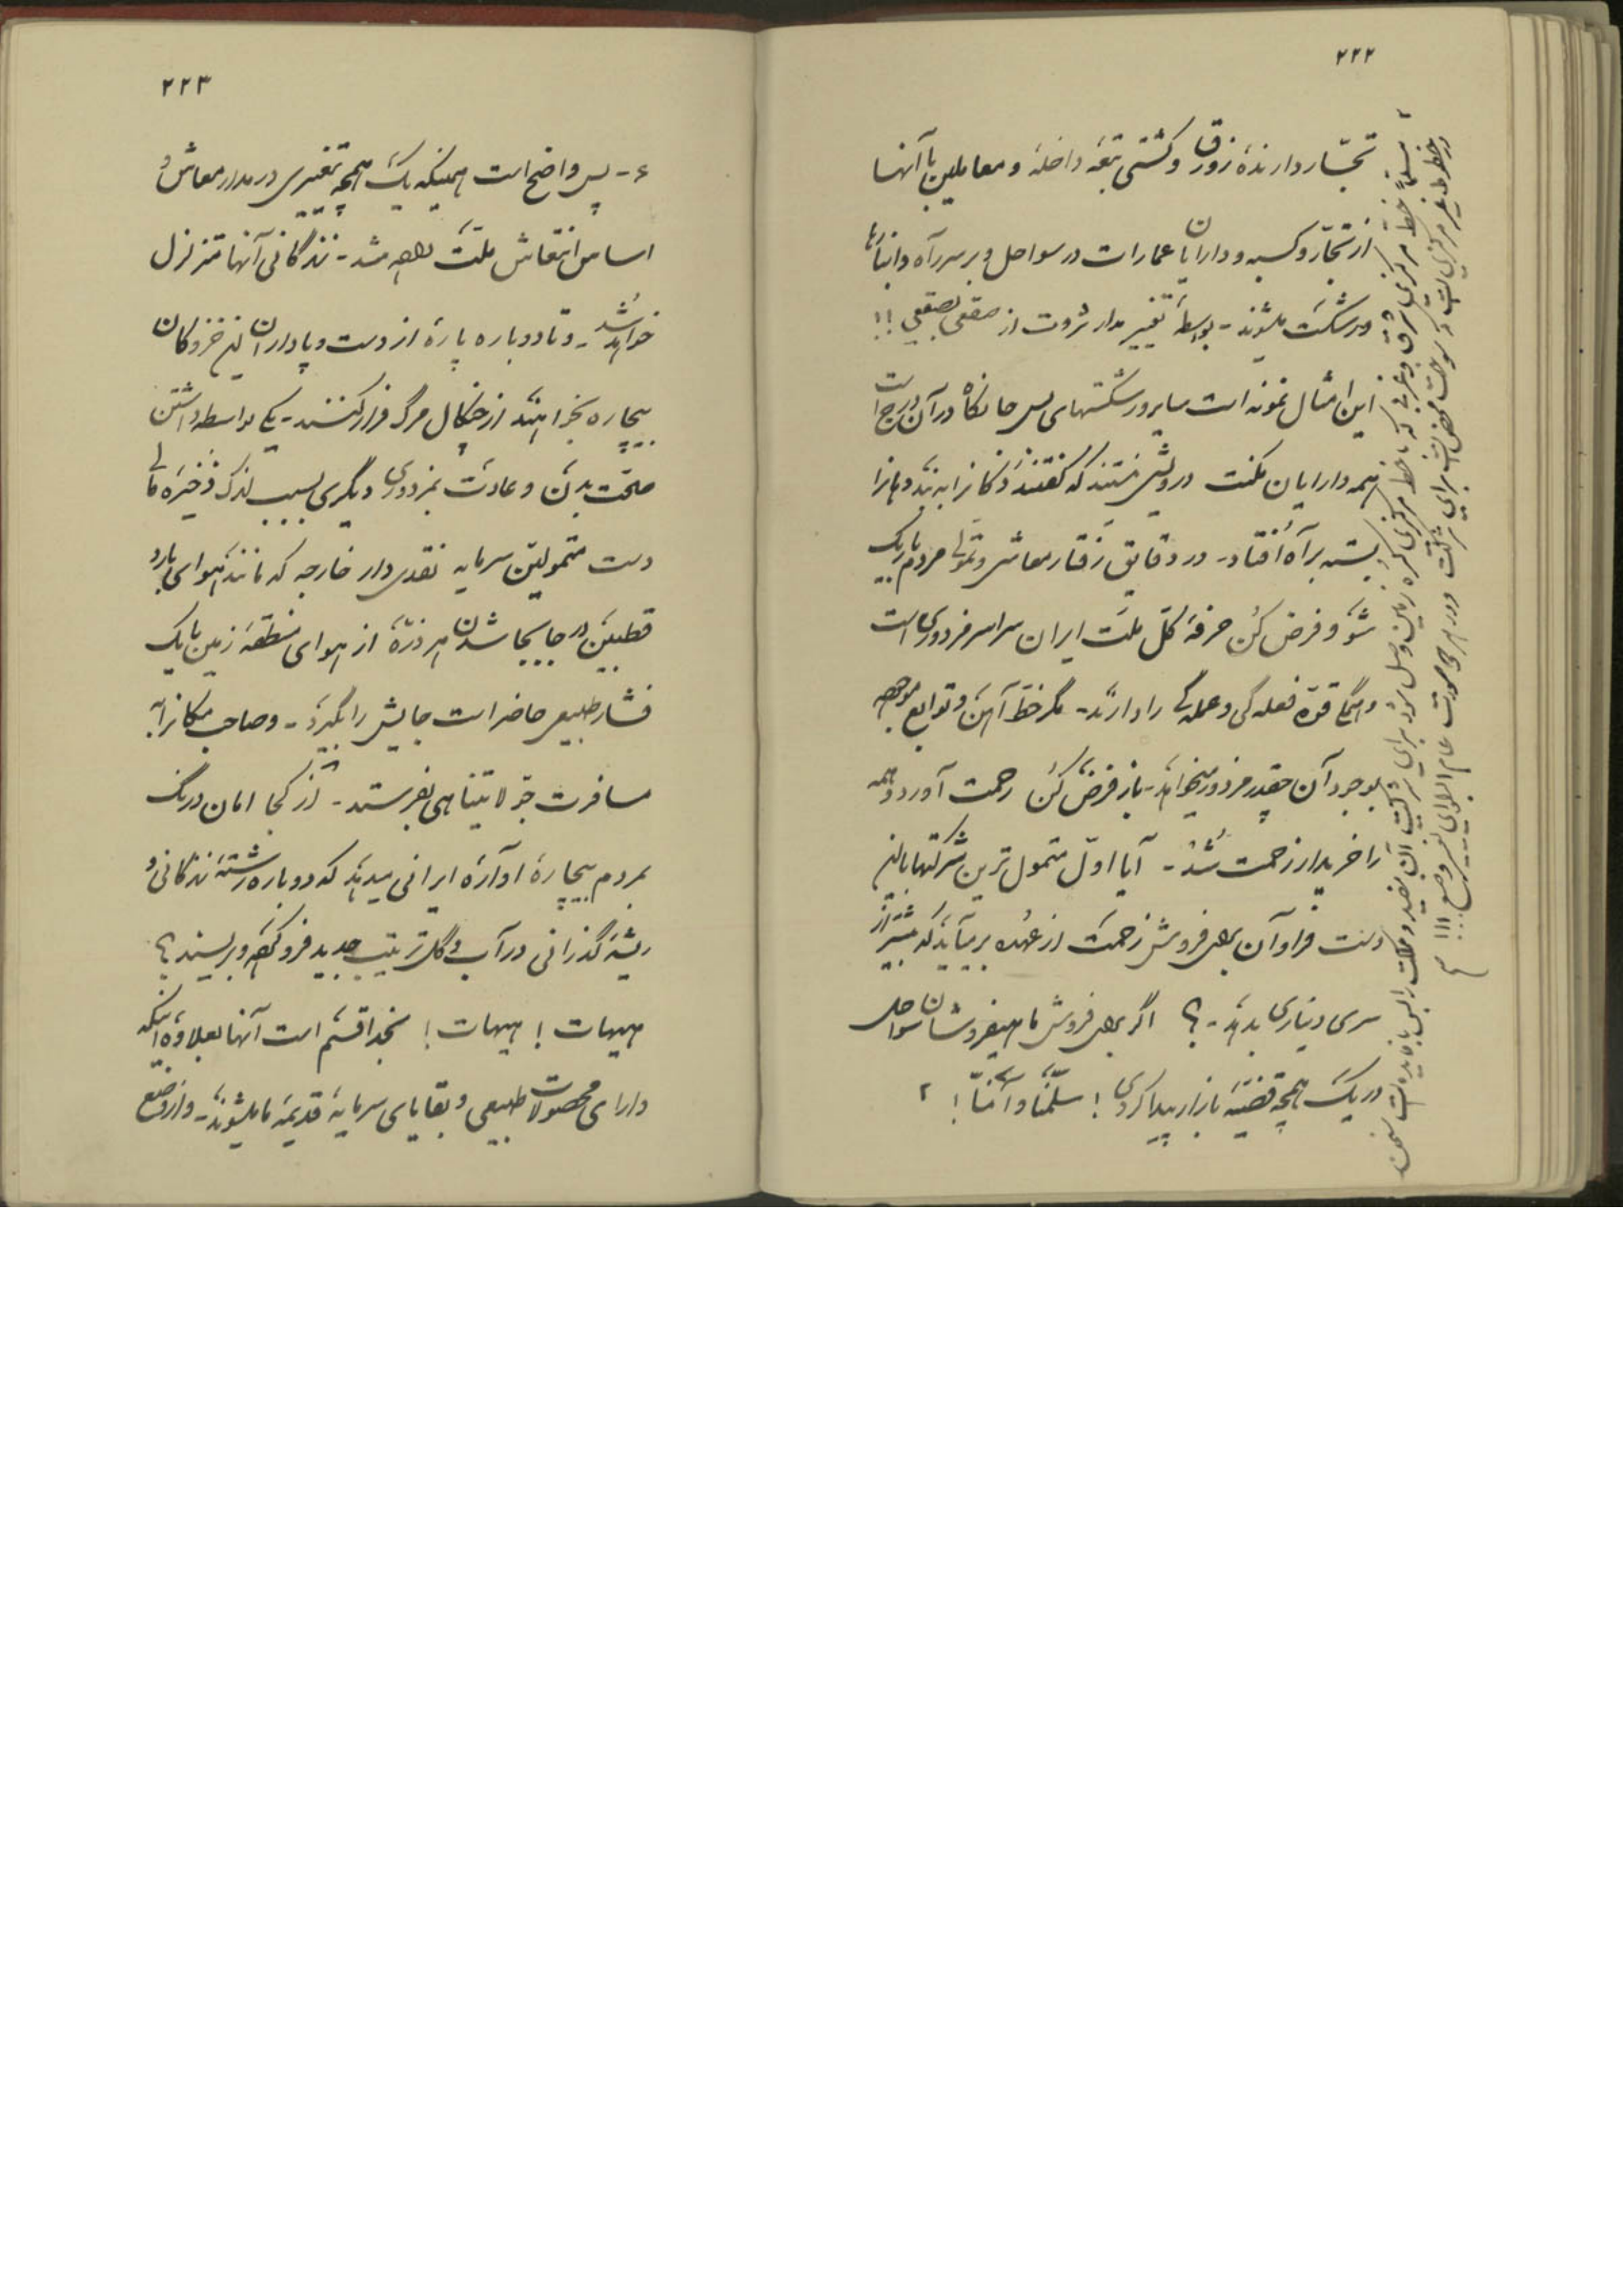 ۲۲۲
تجّار دارندهٔ زورق و کشتی تبعه داخله و معاملین با آنها
از تجّار و کسبه و دارایان عمارات در سواحل و بر سر راه و انبارها
ورشکست میشوند - بواسطهٔ تغییر مدار ثروت از صقعی بصقعی !!
این امثال نمونه است سایر ورشکستهای بس جانکاه در آن درج است
همه دارایان مکنت درویش نیستند که گفتند دکانرا به بند و بازا
بسته براه افتاد - در دقایق رفتار معاش و تموّل مردم باریک
شو و فرض کن حرفهٔ کل ملت ایران سراسر مزدوری است
و همگی قوّه فعله گی و عمله گی را دارند - مگر خط آهن و توابع
بوجود آن چقدر مزدور میخواهد - باز فرض کن رحمت آورد و همه
را خریدار زحمت شد - آیا اول متمول ترین شرکتها باین
دست فراوان برای فروش زحمت از عهده برمیآید که بیشتر از
سری دیناری بدهد - ؟ اگر برای فروش ماهیفروشان سواحل
در یک همچه قضیّه بازار پیدا کردی ! سلّمنا و آمنّا ! ۲
۲ مسلماً خط مرکزی شرق و غربی که با خط مرکزی کره زمین وصل شود برای شرکت آن مفید و مملکت را بس با فایده است
و خطوط غیر مرکزی است که سوخت محض است برای شرکت و در هر صورت عام البلوای غیر وضع !!! ۳
۲۲۳
۶ - پس واضح است همینکه یک همچه تغییری در مدار معاش و
اساس انتعاش ملت داده شد - زندگانی آنها متزلزل
خواهد شد - و تا دوباره پارهٔ از دست و پاداران این
بیچاره بخواهند از چنگال مرگ فرار کنند - یکی بواسطه داشتن
صحّت بدن و عادت بمزدوری و دیگری بسبب اندک ذخیره مالی
دست متمولین سرمایه نقدی دار خارجه که مانند هوای بارد
قطبین در جابجا شدن هر ذرّهٔ از هوای منطقه زمین با یک
فشار طبیعی حاضر است جایش را بگیرد - و صاحب مکانرا به
مسافرت جولایتناهی بفرستد - از کجا امان درنگ
بمردم بیچارهٔ آوارهٔ ایرانی میدهد که دوباره رشتهٔ زندگانی و
ریشهٔ گذرانی در آب و گل ترتیب جدید فرو کرده و بریسند ؟
هیهات ! هیهات ! بخدا قسم است آنها بعلاوه اینکه
دارای محصولات طبیعی و بقایای سرمایهٔ قدیمهٔ ما میشوند - و از وضع